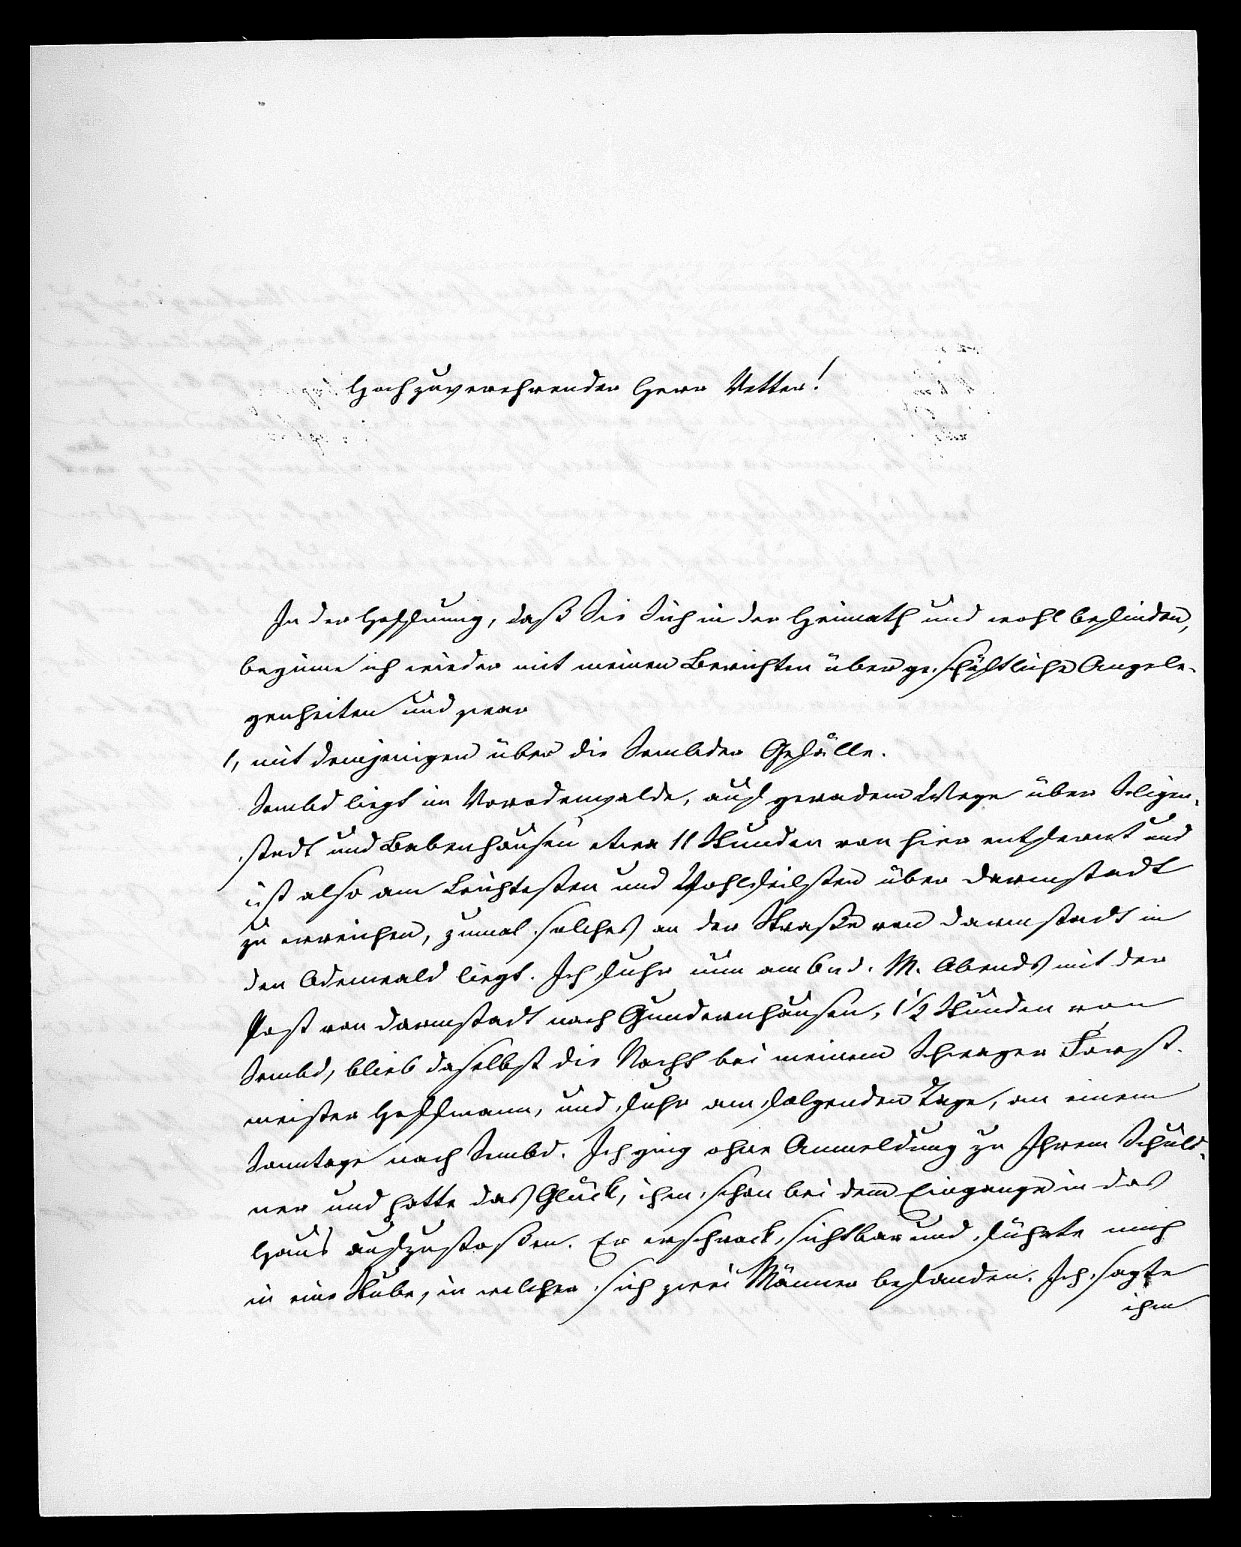 Hochzuverehrender Herr Vetter!
In der Hoffnung, daß Sie Sich in der Heimath und wohl befinden,
beginne ich wieder mit meinen Berichten über geschäftliche Angele-
genheiten und zwar
1, mit demjenigen über die Sembder Gefälle.
Sembd liegt im Vorodenwalde, auf geradem Wege über Seligen-
stadt und Babenhausen etwa 11 Stunden von hier entfernt und
ist also am Leichtesten und Wohlfeilsten über Darmstadt
zu erreichen, zumal solches an der Straße von Darmstadt in
den Odenwald liegt. Ich fuhr nun am 6 v. d. M. Abends mit der
Post von Darmstadt nach Gundernhausen, 1 1/2 Stunden von
Sembd, blieb daselbst die Nacht bei meinem Schwager Forst-
meister Hoffmann, und fuhr am folgenden Tage, an einem
Sonntage nach Sembd. Ich ging ohne Anmeldung zu Ihrem Schuld-
ner und hatte das Glück, ihm schon bei dem Eingange in das
Haus aufzustoßen. Er erschrack sichtbar und führte mich
in eine Stube, in welcher sich zwei Männer befanden. Ich sagte
ihm